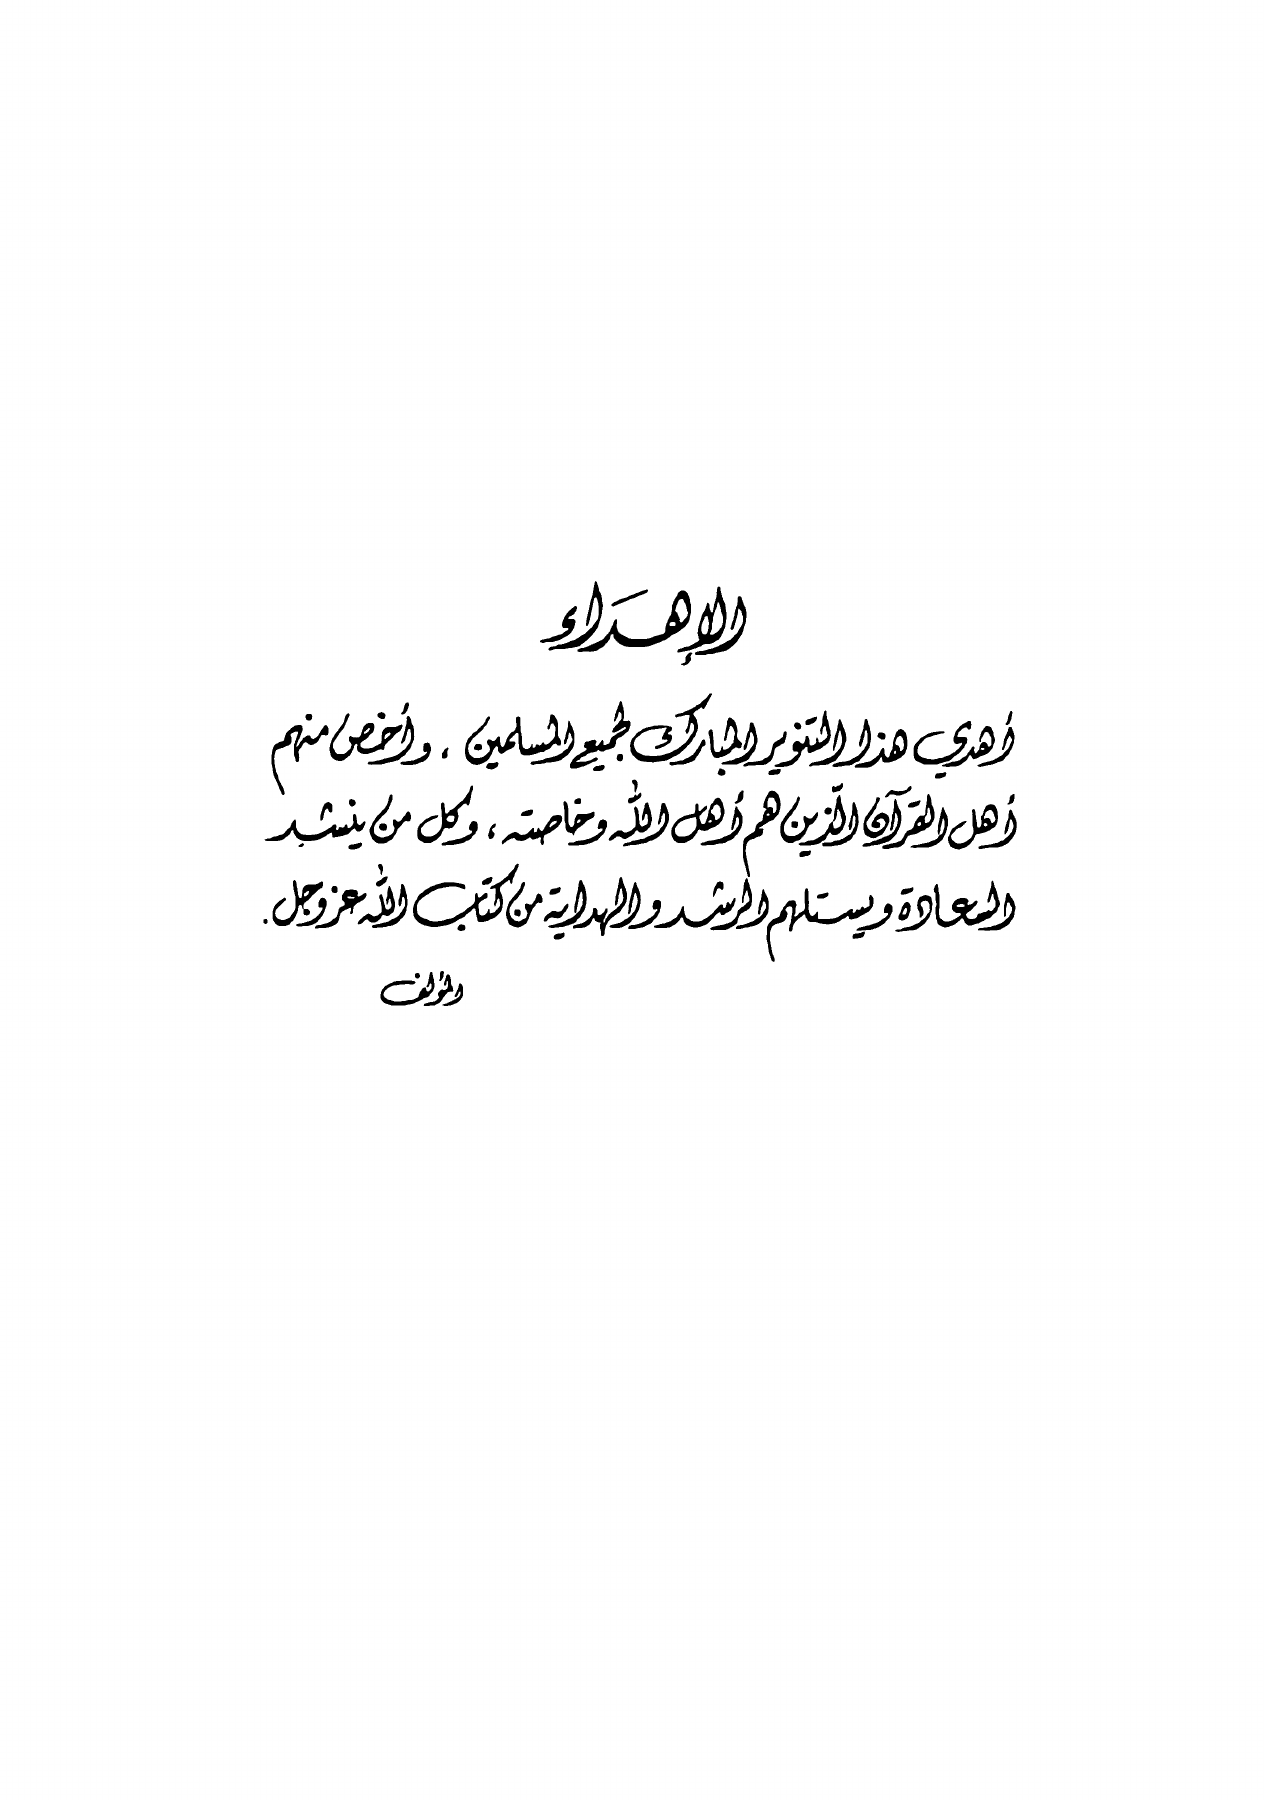 الإهداء
أهدي هذا التنوير المبارك لجميع المسلمين ، وأخص منهم
أهل القرآن الّذين هم أهل اللّه وخاصته ، وكل من ينشد
السعادة ويستلهم الرشد والهداية من كتاب اللّه عز وجل .
المؤلف